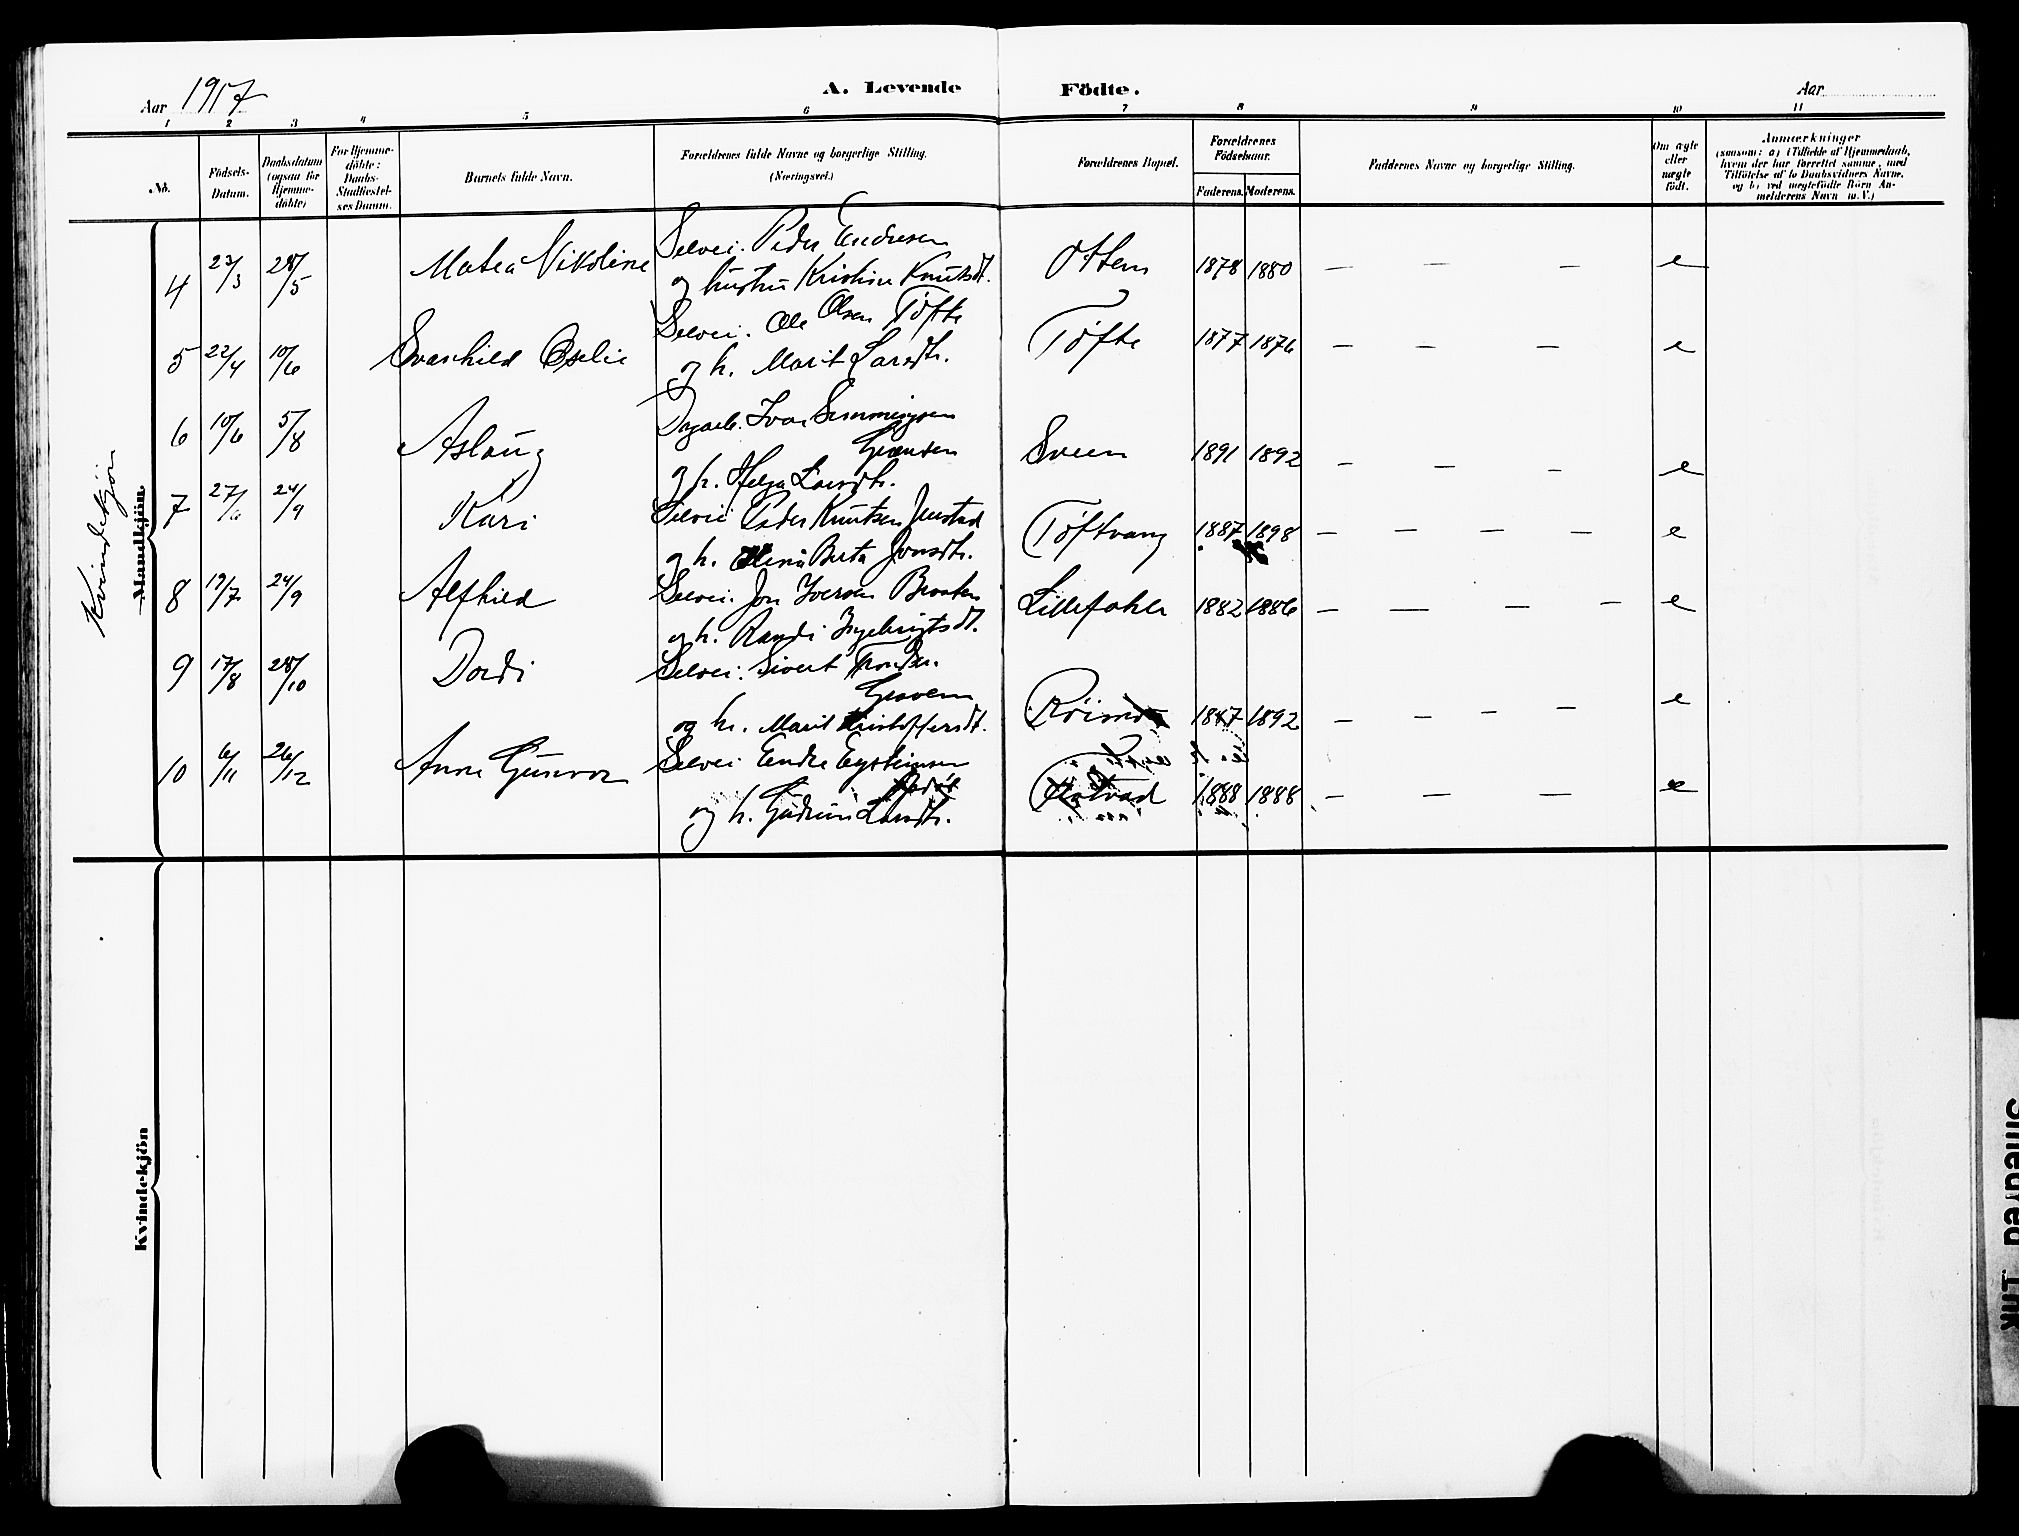 Aar 1917
A. Levende Fødte.
Aar
1 2 3 4 5 6 7 8 9 10 11
No.
Födsels-Datum.
Daabsdatum (ogsaa for Hjemme-döbte)
For Hjemme-döbte: Daabs-Stadfæstel-ses Datum.
Barnets fulde Navn.
Forældrenes fulde Navne og borgerlige Stilling. (Næringsvei.)
Forældrenes Bopæl.
Forældrenes Födselsaar.
Faderens. Moderens.
Faddernes Navne og borgerlige Stilling.
Om ægte eller uægte födt.
Anmærkninger
(saasom: a) i Tilfælde af Hjemmedaab,
hvem der har forrettet samme, med
Tilföielse af to Daabsvidners Navne,
og b) ved uægtefödte Börn An-
melderens Navn m. V.)
Kvindekjön
Mandkjön.
Selvei. Peder Endresen
4 23/3 28/5 Matea Nikoline og hustru Kristine Knutsdt. Ottem 1878 1880 — — — e
Selvei. Ole Olsen Tøfte
5 22/4 10/6 Svanhild Oselie og h. Marit Larsdtr. Tøfte 1877 1876 — — — e
Ivar Semmingsen
6 10/6 5/8 Aslaug Grønden Sveen 1891 1892 — — — e
og h. Helga Larsdtr.
7 27/6 24/9 Kari Selvei Peder Knutsen Tøftvang 1887 1898 — — — — e
og h. Berta Jonsdtr.
8 19/7 24/9 Alfhild Selvei. Jon Iversen Lillefahle 1882 1886 — — — — e
og h. Randi Ingebrigtsdt.
9 17/8 28/10 Dordi Selvei. Sivert
og h. Marit Kristoffersdt. 1892 — — — — e
10 6/11 26/12 Anne Gunvor Selvei Endre Eysteinsen
og h. Gudrun Larsdtr. 1888 1888 — — — e
Kvindekjön
Smeared Ink